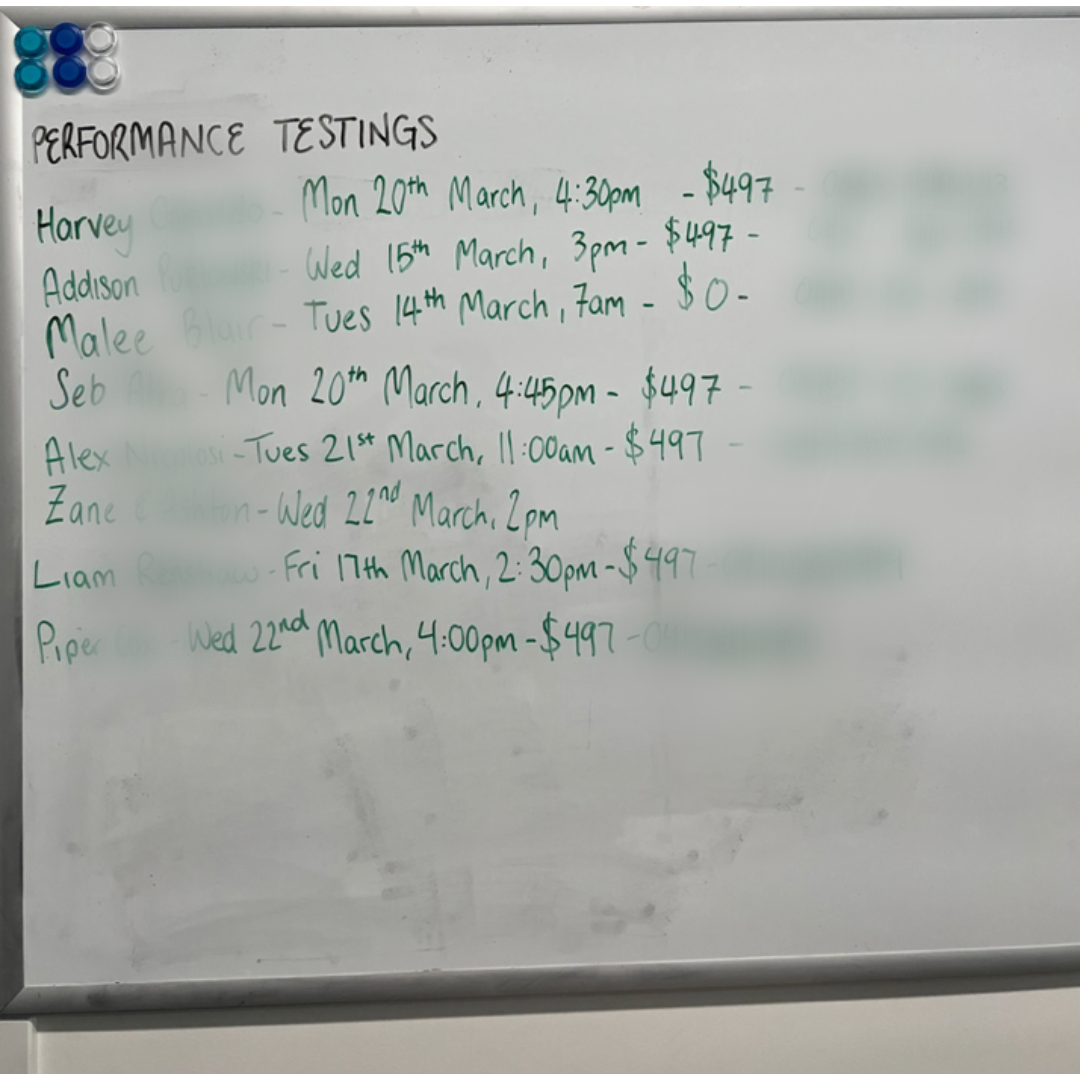 PERFORMANCE TESTINGS
Harvey - Mon 20th March, 4:30pm - $497 -
Addison - Wed 15th March, 3pm - $497 -
Malee Blair - Tues 14th March, 7am - $0 -
Seb - Mon 20th March, 4:45pm - $497 -
Alex - Tues 21st March, 11:00am - $497 -
Zane - Wed 22nd March, 2pm
Liam - Fri 17th March, 2:30pm - $497 -
Piper - Wed 22nd March, 4:00pm - $497 -